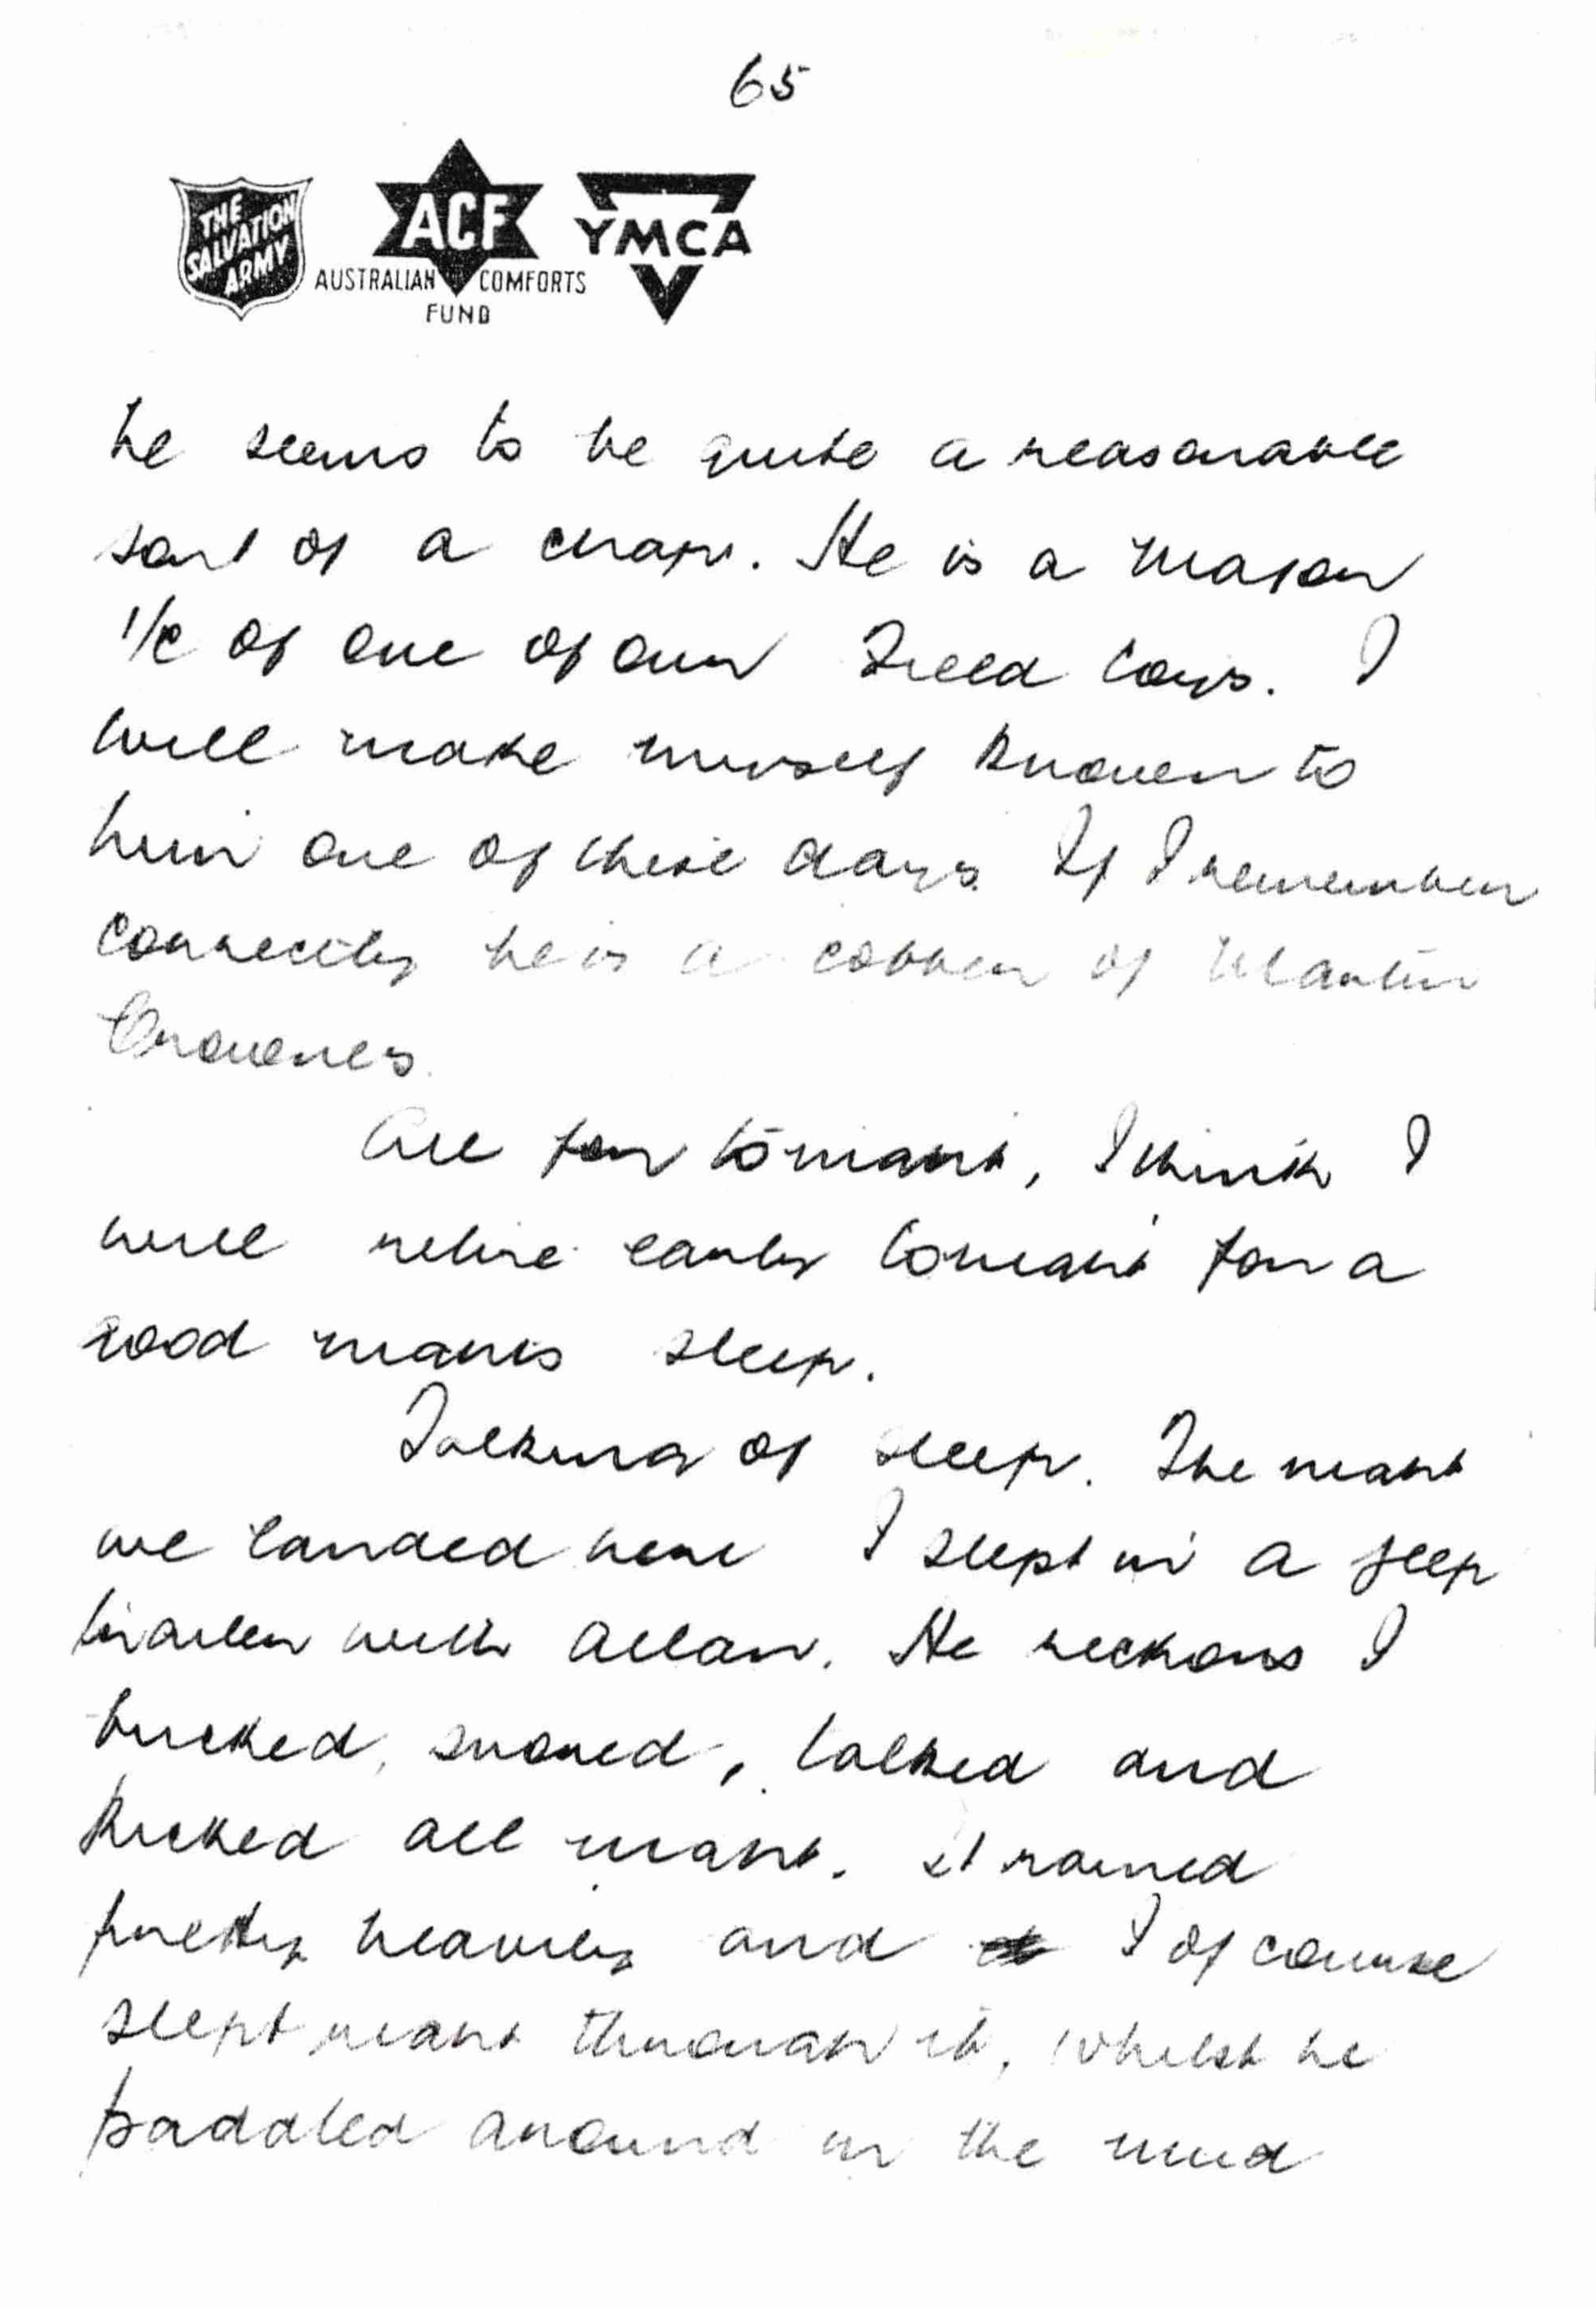 65
THE SALVATION ARMY
ACF
AUSTRALIAN COMFORTS FUND
YMCA
he seems to be quite a reasonable
sort of a chap. He is a Major
i/c of one of our Field Coys. I
will make myself known to
him one of these days. If I remember
correctly he is a cobber of Martin
All for tonight, I think I
will retire early tonight for a
good nights sleep.
Talking of sleep. The night
we landed here I slept in a jeep
trailer with Allan. He reckons I
bucked, snored, talked and
kicked all night. It rained
pretty heavily and I of course
slept right through it, whilst he
paddled around in the mud